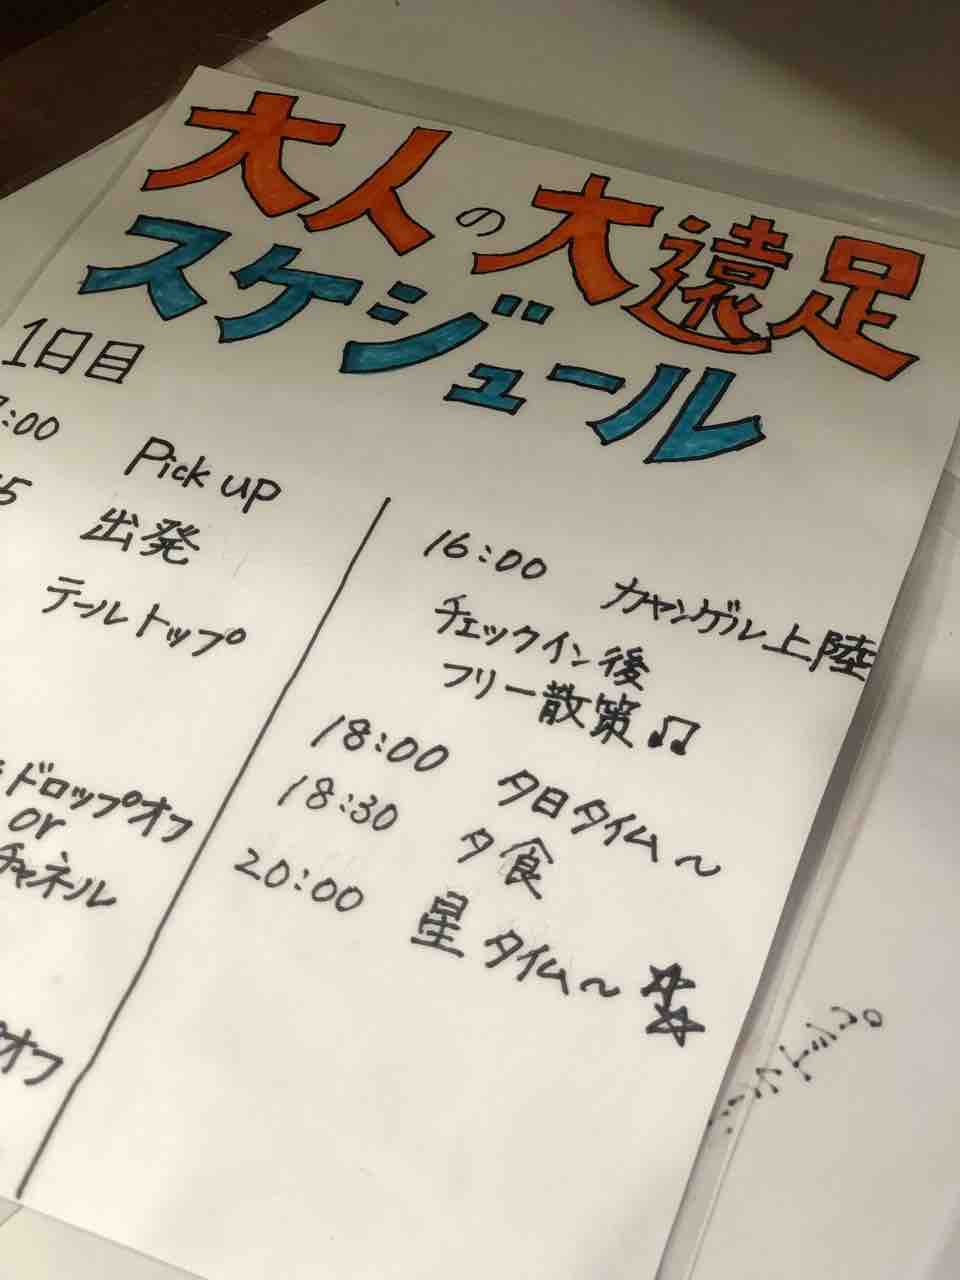 大人の大遠足
スケジュール
1日目
:00 Pick up
5 出発
テールトップ
ドロップオフ
or
チャネル
オフ
16:00 カヤンゲル上陸
チェックイン後
フリー散策♫
18:00 夕日タイム〜
18:30 夕食
20:00 星タイム〜☆☆